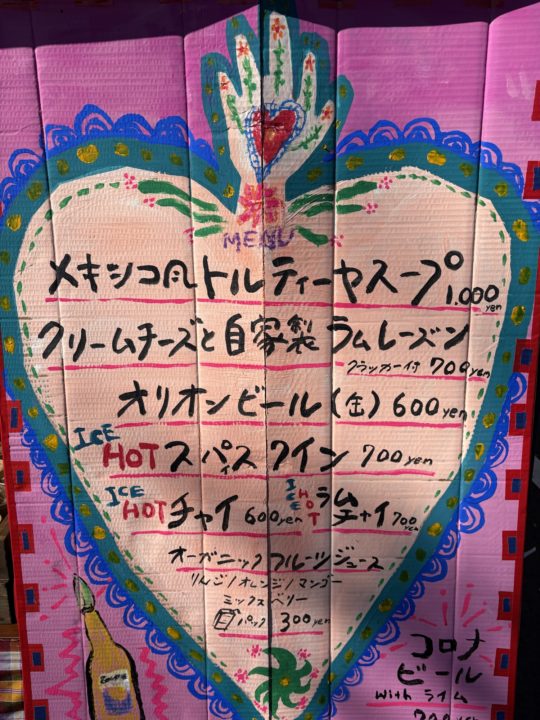 MENU
メキシコ風トルティーヤスープ 1,000yen
クリームチーズと自家製ラムレーズン
クラッカー付 700yen
オリオンビール(缶)600yen
ICE HOT スパイスワイン 700yen
ICE HOT チャイ 600yen ICE HOT ラムチャイ 700yen
オーガニックフルーツジュース
りんご/オレンジ/マンゴー
ミックスベリー
パック 300yen
コロナ
ビール
with ライム